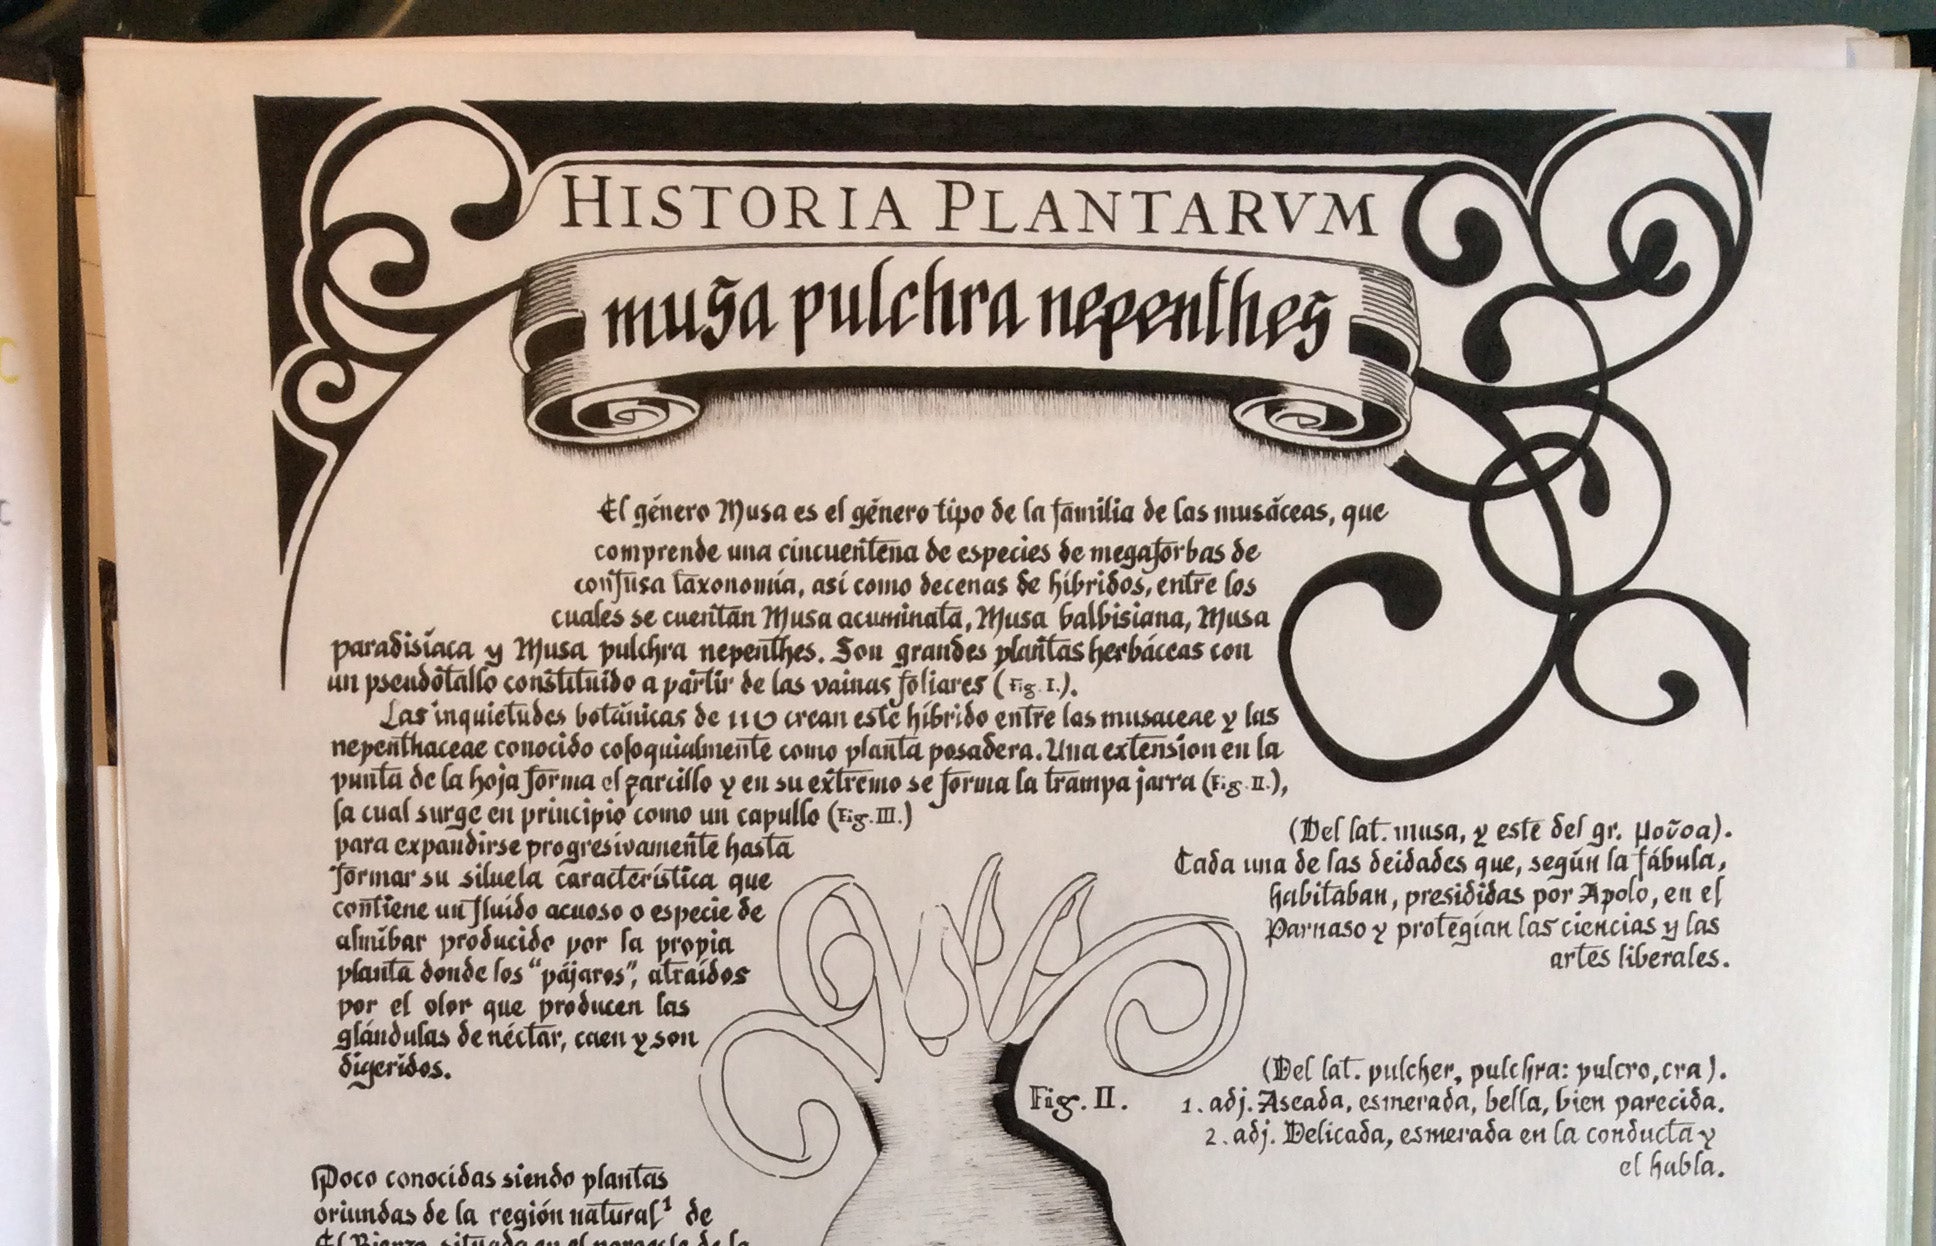 HISTORIA PLANTARVM
musa pulchra nepenthes
El género Musa es el género tipo de la familia de las musáceas, que
comprende una cincuentena de especies de megaforbas de
confusa taxonomía, así como decenas de híbridos, entre los
cuales se cuentan Musa acuminata, Musa balbisiana, Musa
paradisíaca y Musa pulchra nepenthes. Son grandes plantas herbáceas con
un pseudotallo constituido a partir de las vainas foliares (Fig. I.).
Las inquietudes botánicas de crean este híbrido entre las musaceae y las
nepenthaceae conocido coloquialmente como planta posadera. Una extension en la
punta de la hoja forma el zarcillo y en su extremo se forma la trampa jarra (Fig. II.),
la cual surge en principio como un capullo (Fig. III.)
para expandirse progresivamente hasta
formar su silueta característica que
contiene un fluido acuoso o especie de
almíbar producido por la propia
planta donde los "pájaros", atraídos
por el olor que producen las
glándulas de néctar, caen y son
digeridos.
(Del lat. musa, y este del gr. μοῦσα).
Cada una de las deidades que, según la fábula,
habitaban, presididas por Apolo, en el
Parnaso y protegían las ciencias y las
artes liberales.
Fig. II.
(Del lat. pulcher, pulchra: pulcro, cra).
1. adj. Aseada, esmerada, bella, bien parecida.
2. adj. Delicada, esmerada en la conducta y
el habla.
Poco conocidas siendo plantas
oriundas de la región natural¹ de
El Bierzo, situada en el noroeste de la